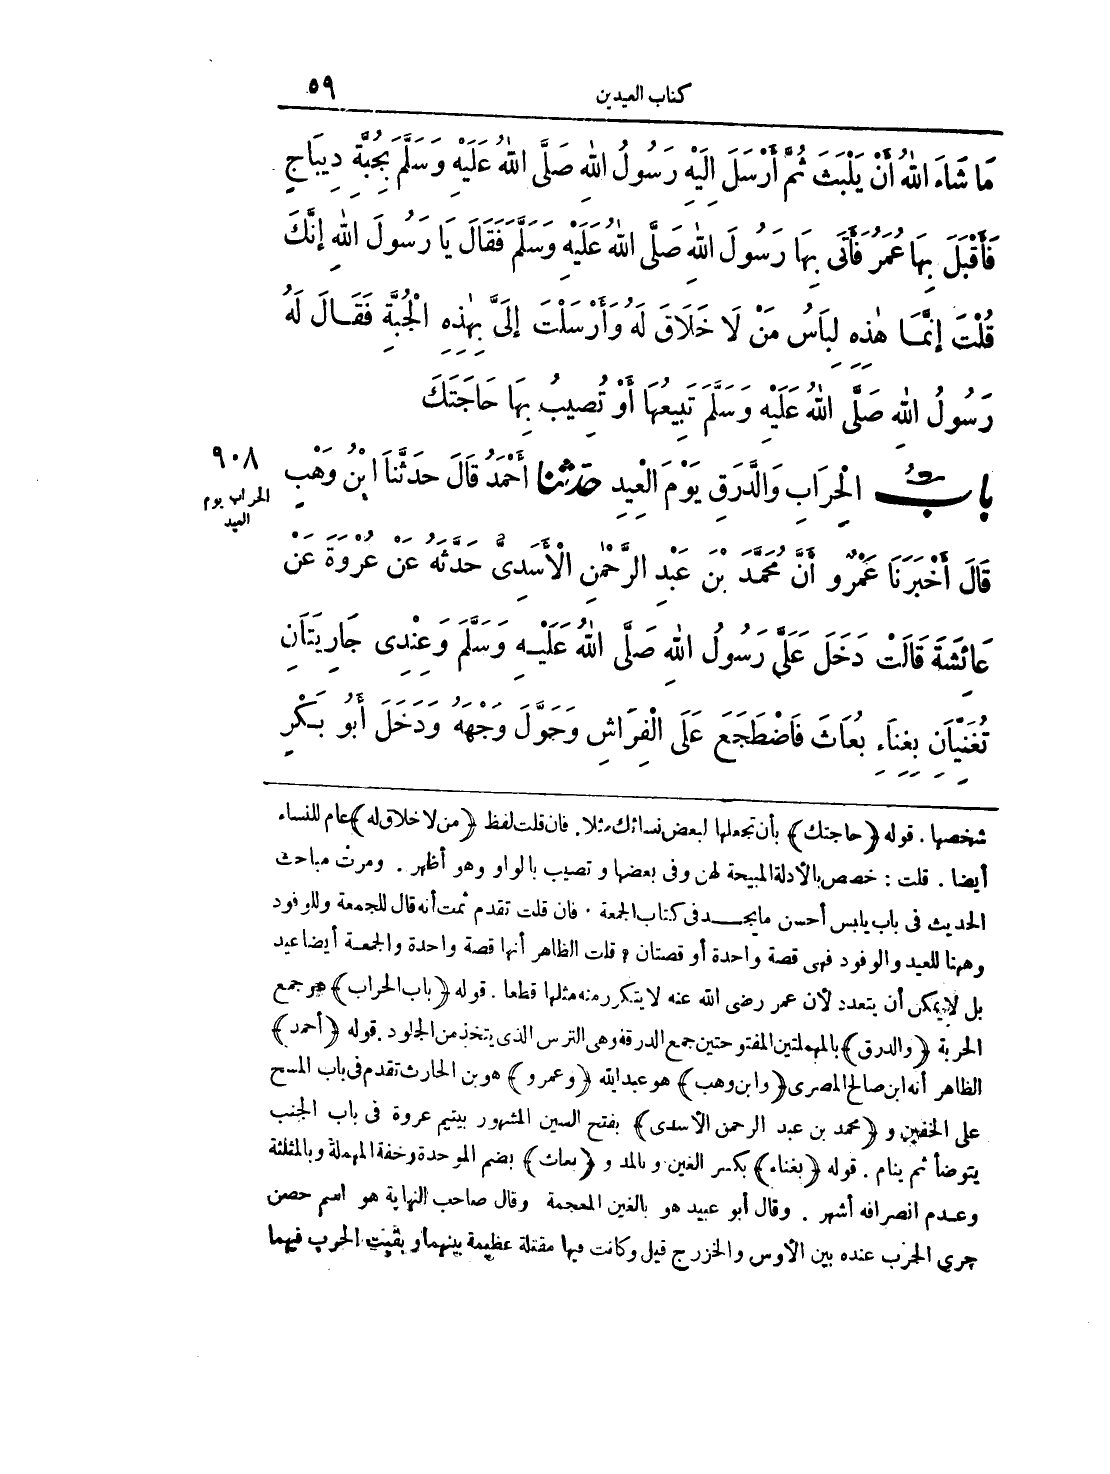 كتاب العيدين ٥٩
مَا شَاءَ اللهُ أَنْ يَلْبَثَ ثُمَّ أَرْسَلَ إِلَيْهِ رَسُولُ اللهِ صَلَّى اللهُ عَلَيْهِ وَسَلَّمَ بِجُبَّةِ دِيبَاجٍ
فَأَقْبَلَ بِهَا عُمَرُ فَأَتَى بِهَا رَسُولَ اللهِ صَلَّى اللهُ عَلَيْهِ وَسَلَّمَ فَقَالَ يَا رَسُولَ اللهِ إِنَّكَ
قُلْتَ إِنَّمَا هٰذِهِ لِبَاسُ مَنْ لَا خَلَاقَ لَهُ وَأَرْسَلْتَ إِلَىَّ بِهٰذِهِ الْجُبَّةِ فَقَالَ لَهُ
رَسُولُ اللهِ صَلَّى اللهُ عَلَيْهِ وَسَلَّمَ تَبِيعُهَا أَوْ تُصِيبُ بِهَا حَاجَتَكَ
بابُ الْحِرَابِ وَالدَّرَقِ يَوْمَ الْعِيدِ حَدَّثَنَا أَحْمَدُ قَالَ حَدَّثَنَا ابْنُ وَهْبٍ
٩٠٨
الحراب يوم
العيد
قَالَ أَخْبَرَنَا عَمْرٌو أَنَّ مُحَمَّدَ بْنَ عَبْدِ الرَّحْمٰنِ الْأَسَدِىَّ حَدَّثَهُ عَنْ عُرْوَةَ عَنْ
عَائِشَةَ قَالَتْ دَخَلَ عَلَىَّ رَسُولُ اللهِ صَلَّى اللهُ عَلَيْهِ وَسَلَّمَ وَعِنْدِى جَارِيَتَانِ
تُغَنِّيَانِ بِغِنَاءِ بُعَاثَ فَاضْطَجَعَ عَلَى الْفِرَاشِ وَحَوَّلَ وَجْهَهُ وَدَخَلَ أَبُو بَكْرٍ
شخصها . قوله ﴿حاجتك﴾ بأن تجعلها لبعض نسائك مثلا. فان قلت لفظ ﴿من لا خلاق له﴾ عام للنساء
أيضا . قلت : خصص بالأدلة المبيحة لهن وفى بعضها و تصيب بالواو وهو أظهر . ومرت مباحث
الحديث فى باب يلبس أحسن مايجد فى كتاب الجمعة . فان قلت تقدم ثمت أنه قال للجمعة وللوفود
وههنا للعيد والوفود فهى قصة واحدة أو قصتان ؟ قلت الظاهر أنها قصة واحدة والجمعة أيضا عيد
بل لايمكن أن يتعدد لأن عمر رضى الله عنه لا يتكرر منه مثلها قطعا . قوله ﴿باب الحراب﴾ هو جمع
الحربة ﴿والدرق﴾ بالمهملتين المفتوحتين جمع الدرقة وهى الترس الذى يتخذ من الجلود . قوله ﴿أحمد﴾
الظاهر أنه ابن صالح المصرى ﴿وابن وهب﴾ هو عبد الله ﴿وعمرو﴾ هو بن الحارث تقدم فى باب المسح
على الخفين و ﴿محمد بن عبد الرحمن الأسدى﴾ بفتح السين المشهور بيتيم عروة فى باب الجنب
يتوضأ ثم ينام . قوله ﴿بغناء﴾ بكسر الغين وبالمد و ﴿بعاث﴾ بضم الموحدة وخفة المهملة وبالمثلثة
وعدم انصرافه أشهر . وقال أبو عبيد هو بالغين المعجمة وقال صاحب النهاية هو اسم حصن
جرى الحرب عنده بين الأوس والخزرج قيل وكانت فيها مقتلة عظيمة بينهما وبقيت الحرب فيهما